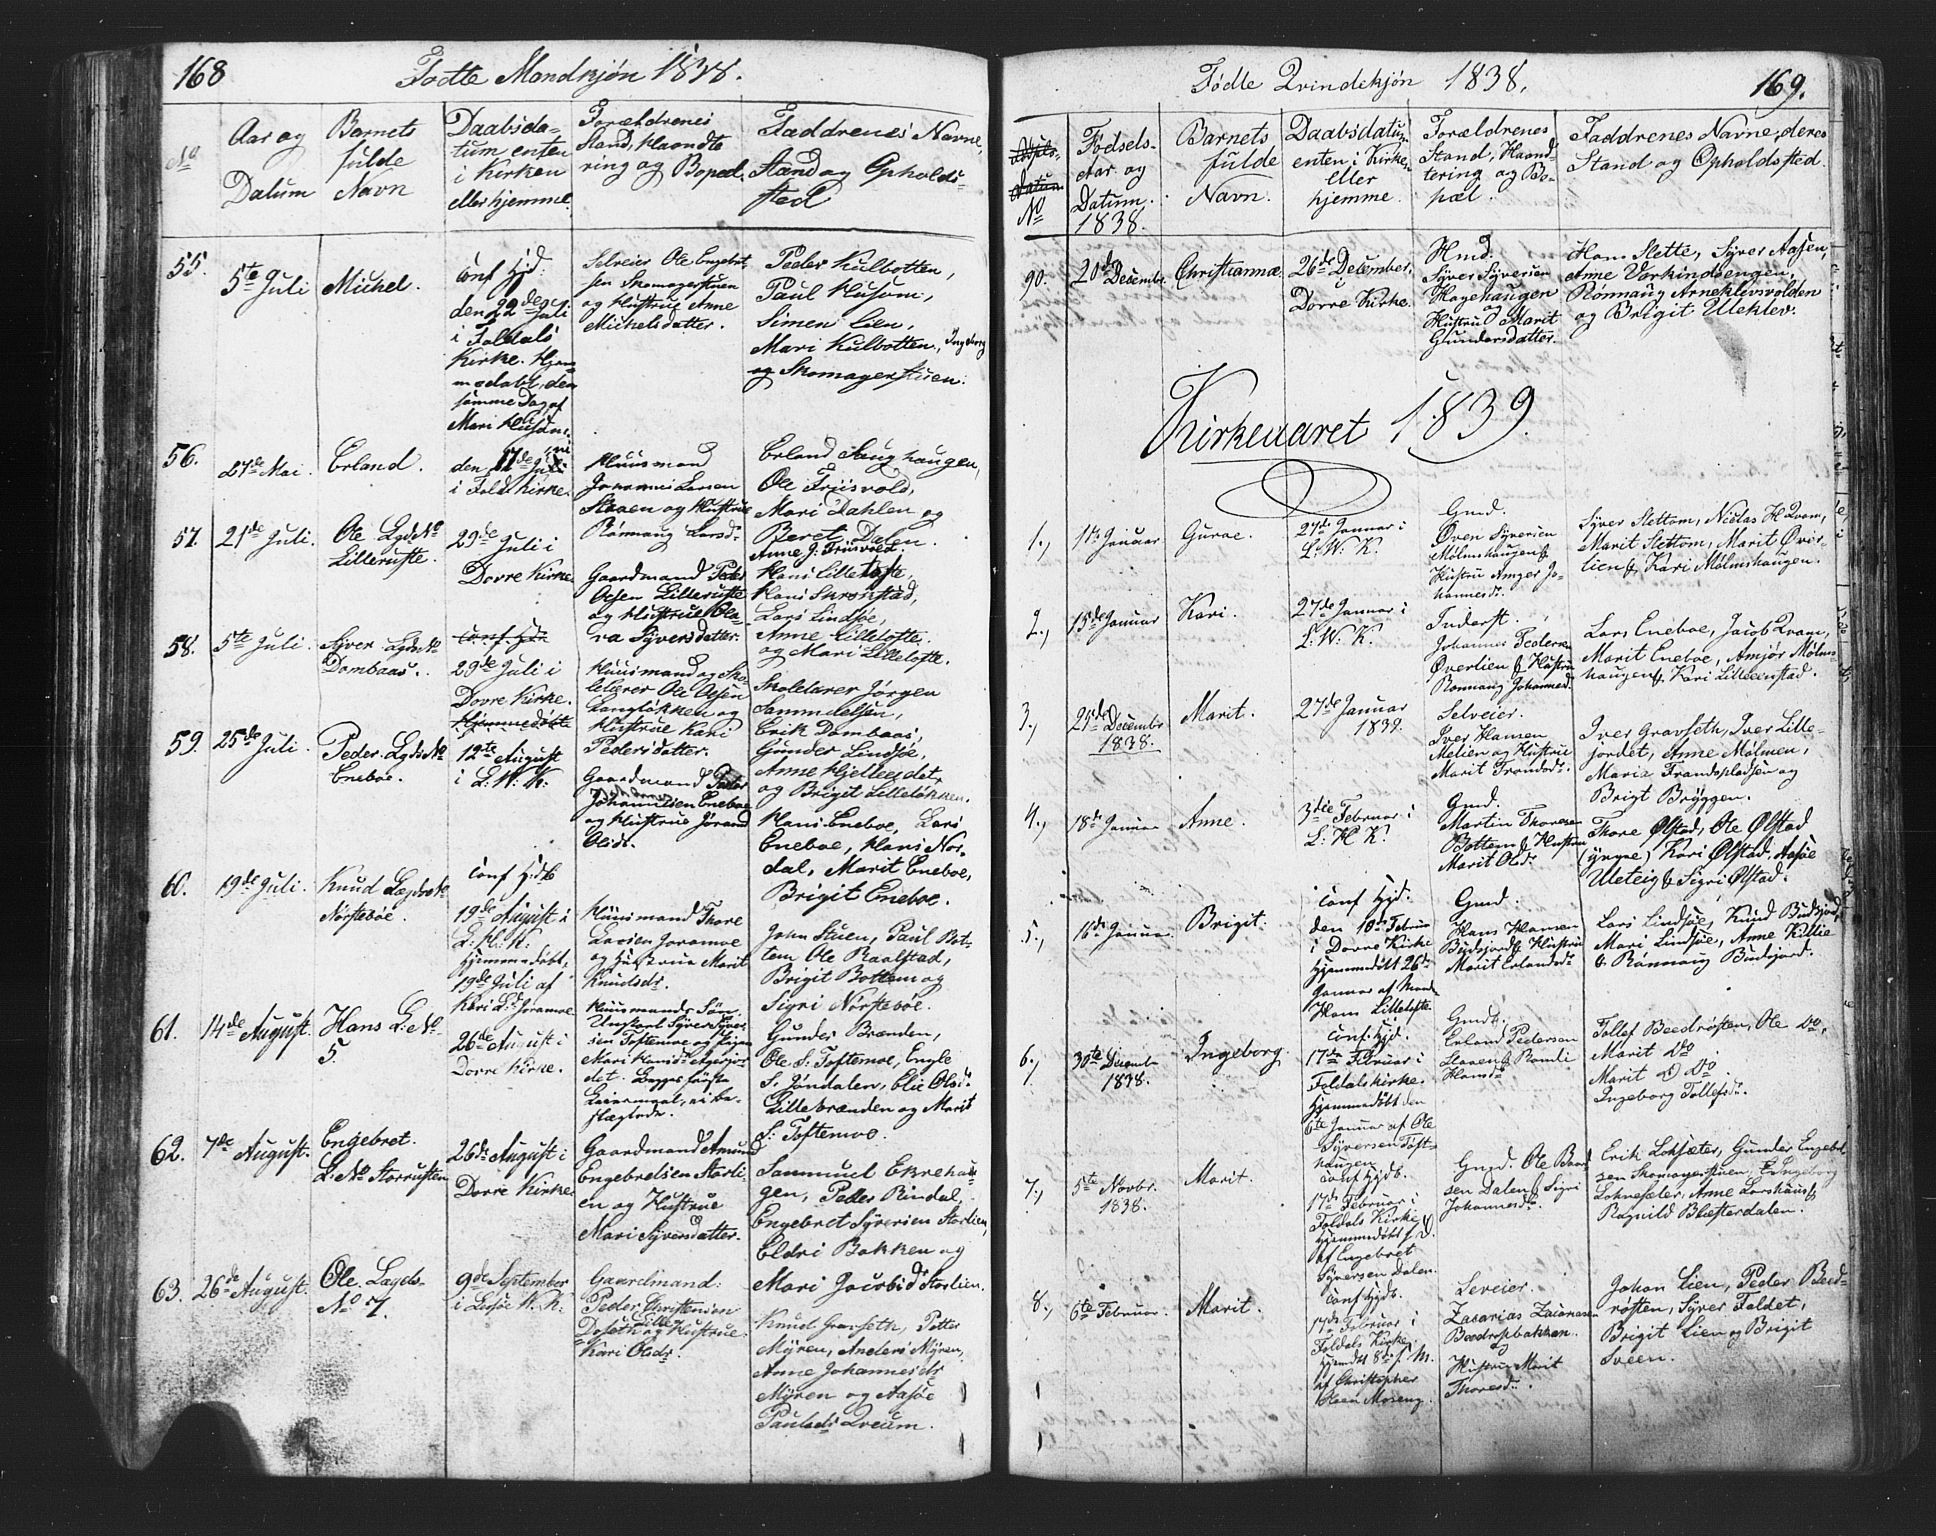 168
Fødte Mandkjøn 1838.
No
Aar og
Datum
Barnets
fulde
Navn
Daabsda-
tum enten
i Kirken
eller hjemme.
Forældrenes
Stand, Haandte
ring og Bopæl.
Faddrenes Navne,
Stand og Opholds-
sted
55.
5te Juli
Mickel.
Conf. Hjd:
den 22de Juli
i Foldals
Kirke. Hjem
medøbt den
samme Dag af
Mari Husom.
Selveier Ole Engebret
sen Skomagerstuen
og Hustrue Anne
Mickelsdatter.
Peder Kulbotten,
Paul Husom,
Simen Lien,
Mari Kulbotten, Ingeborg
og Skomagerstuen.
56.
27de Mai.
Erland.
den 17de Juni
i Fold. Kirke.
Huusmand
Johannes Larsen
Staaen og Hustrue
Rønnaug Larsd.
Erland Haughaugen,
Ole Friisvold,
Mari Dahlen og
Beret Dalen.
Anne J. Friisvold.
57.
21de Juli.
Ole LgdNo
Lilleruste.
29de Juli i
Dovre Kirke.
Gaardmand Peder
Olsen Lilleruste
og Hustrue Ola-
va Syversdatter.
Hans Lilletofte,
Hans Skronstad,
Lars Lindsøe,
Anne Lilletofte.
og Mari Lilletofte.
58.
5te Juli.
Syver LgdsNo
Dombaas.
Conf. Hjd.
29de Juli i
Dovre Kirke.
Hjemmedøbte
Huusmand og Sko-
lelærer Ole Olsen
Langløkken og
Hustrue Kari
Pedersdatter.
Skolelærer Jørgen
Sammuelsen,
Erik Dombaas,
Gunder Lindsøe,
Anne Hjelleredet,
og Brigit Lilleløkken.
59.
25de Juli.
Peder. LgdsNo
Eneboe.
12te August
i L. W. K.
Gaardmand Peder
Johannesen Eneboe
og Hustrue Jørand
Olsdr.
Hans Eneboe, Lars
Eneboe, Hans Nor-
dal, Marit Eneboe,
Brigit Eneboe.
60.
19de Juli.
Knud LægdsNo
Nørsteboe.
Conf. Hjdb
19de August i
L. H. K.
hjemmedøbt.
19de Juli af
Kari Ld Joramoe.
Huusmand Thore
Larsen Joramoe
og Hustrue Marit
Knudsdr.
John Stuen, Paul Bot-
tem Ole Raalstad,
Brigit Bottem og
Sigri Nørsteboe.
61.
14de August.
Hans L: No
5.
26de August i
Dovre Kirke.
Huusmands Søn
Ungkarl Syver Syver
sen Toftemoe og Pigen
Mari Hansdr
det. Begges første
Leiermaal,
Gunder Branden,
Ole S. Toftemoe, Engle
S. Jøndalen, Elie Olsdr
Lillebrænden og Marit
S: Toftemoe.
62.
7de August.
Engebret.
L: No Storrusten
26de August i
Dovre Kirke.
Gaardmand Amund
Engebretsen Storli-
en og Hustrue
Mari Syversdatter.
Sammuel Ekrehau-
gen, Peder Rindal,
Engebret Syversen Storlien,
Eldri Bakken og
Mari Jacobsdr Storlien.
63.
26de August.
Ole. Lægds-
No 7.
9de September
i Lesje W. K.
Gaardmand:
Peder Christensen
Lille
Doseth og Hustrue
Kari Olsdr.
Knud Gravseth, Petter
Myren, Anders Myren,
Anne Johannesdr
Myren og Aasøe
Paulsdr Qveum.
Fødte Qvindekjøn 1838.
169.
No
Fødsels-
Aar og
Datum.
1838.
Barnets
fulde
Navn.
Daabsdatum
enten i Kirken
eller
hjemme.
Forældrenes
Stand, Haand-
tering og Bo-
pæl.
Faddrenes Navne, deres
Stand og Opholdssted.
90.
20de Decembr.
Christianna
26de December.
i
Dovre Kirke.
Hmd.
Syver Syversen
Hagehaugen
og
Hustru Marit
Gundersdatter.
Hans Slette, Syver Aasen,
Anne Vorkindsengen,
Rønnaug Arneklevsvolden
og Brigit Uleklev.
Kirkeaaret 1839.
1.,
Januar
Guroe.
27de Januar i
L. W. K.
Gmd.
Øven Syversen
Mølmshaugen &
Hustru Amger Jo-
hannesdr.
Syver Slettom, Niclas H Qvam,
Marit Slettom, Marit Øver-
lien & Kari Mølmshaugen.
2.,
15de Januar
Kari.
27de Januar i
L. W. K.
Inderst.
Johannes Pedersen
Øverlien & Hustru
Rønnaug Johannesd.
Lars Eneboe, Jacob Qvam,
Marit Eneboe, Amjør Mølms-
haugen & Kari Lilleenstad.
3.,
21de Decembr
1838.
Marit.
27de Januar
1839.
Selveier.
Iver Hansen
Melien og Hustrue
Marit Trondsdr.
Iver Gravseth, Iver Lille-
jordet, Anne Mølmen,
Maria Trandspladsen og
Brigt Bryggen.
4.,
18de Januar
Anne.
3die Februar i
L. H K.
Gmd.
Martin Thoresen
Bottem & Hustru
Marit Olsdr.
Thore Ølstad, Ole Ølstad
(yngre) Kari Ølstad, Aasøe
Uleteig & Sigri Ølstad.
5.,
16de Januar
Brigit.
Conf. Hjd.
den 10de Februar
i Dovre Kirke
hjemmedøbt 26de
Januar af
Hans Lilletofte
Gmd.
Hans Hansen
Budsjord & Hustru
Marit Erlandsdr
Lars Lindsøe, Knud Budsjord,
Mari Lindsøe, Anne Killie
& Rønnaug Budsjord.
6.,
30te Decemb
1838.
Ingeborg.
Conf. Hjd.
17de Februar i
Foldals Kirke.
Hjemmedøbt den
6te Januar af Ole
Syversen Toft-
haugen
Gmd.
Erland Pedersen
Staaen & Randi
Hansdr
Tollef Beedrøsten, Ole Do,
Marit Do
Marit Do
Ingeborg Tollefsdr.
7.,
5te Novbr.
1838.
Marit.
Conf. Hjdb.
17de Februar i
Foldals Kirke
hjemmedøbt s. D.
af Engebret
Syversen Dalen.
Gmd. Ole
sen Dalen & Sigri
Johannesdr.
Erik Lohsæter, Gunder Engebret
sen Skomagerstuen, Ingeborg
Lohnesæter, Anne Lorshaus &
Ragnild Blæsterdalen.
8.,
6te Februar.
Marit.
Conf. Hjdb.
17de Februar i
Foldals Kirke.
Hjemdt 8de s. M.
af Christopher
Moseng.
Selveier.
Zacarias Zacariasen
Beedropbakken.
og
Hustrue Marit
Thoresdr.
Johan Lien, Peder Beed-
røsten, Syver Foldet,
Brigit Lien og Brigit
Sveen.